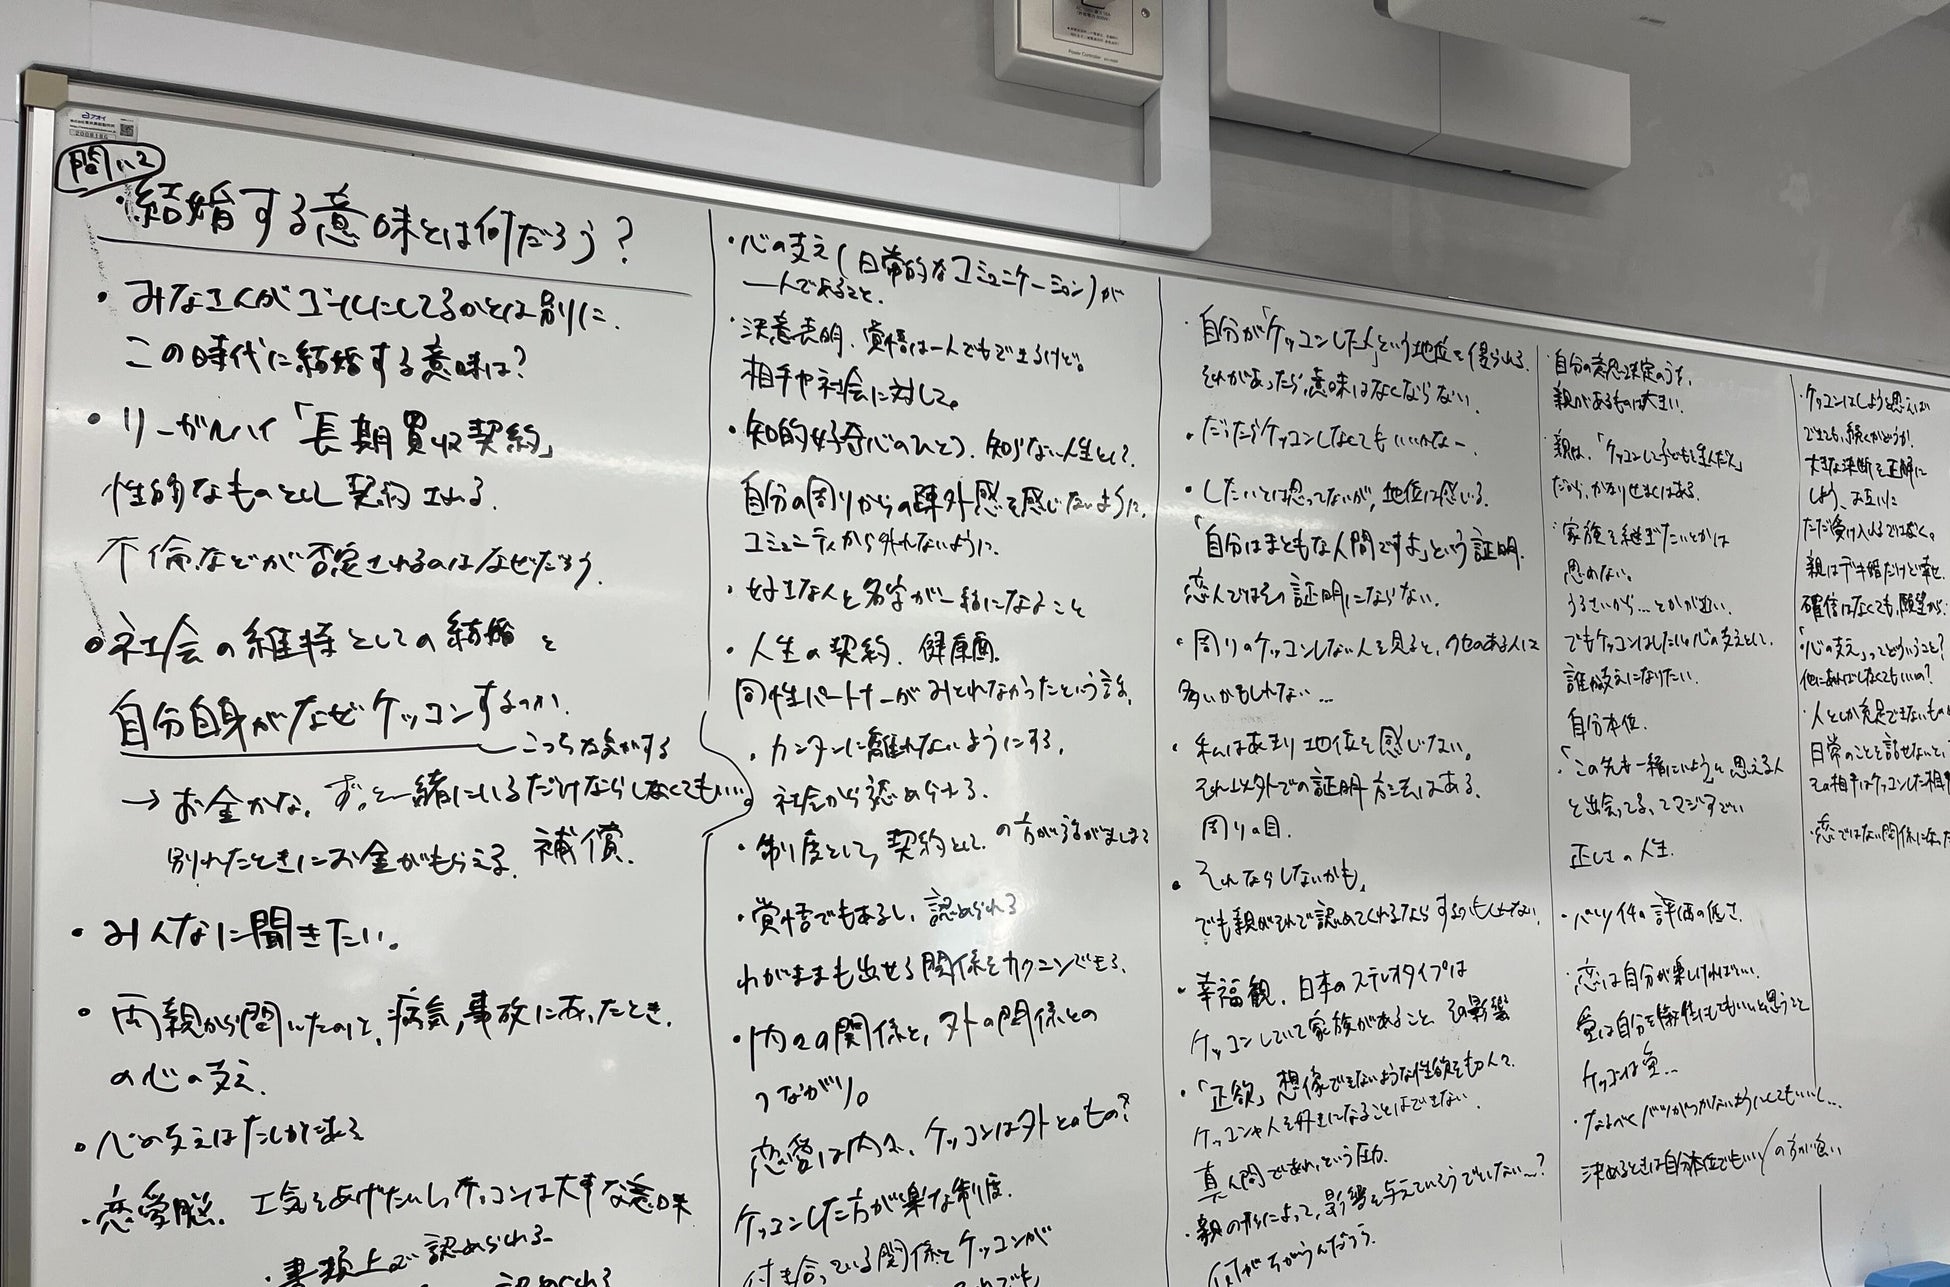 アオイ
Power Controller
問い2
・結婚する意味とは何だろう?
・みなさんがゴールにしてるかとは別に、
この時代に結婚する意味は?
・リーガルハイ「長期買収契約」
性的なものとして契約される。
不倫などが否定されるのはなぜだろう。
・社会の維持としての結婚と
自分自身がなぜケッコンするのか。
こっちな気がする
→お金かな。ずっと一緒にいるだけならしなくてもいい。
別れたときにお金がもらえる。補償。
・みんなに聞きたい。
・両親から聞いたのは、病気、事故にあったとき、
の心の支え。
・心の支えはたしかにある
・恋愛脳。
ケッコンは大事な意味
・書類上で認められる。
認められる
・心の支え(日常的なコミュニケーション)が
一人であること。
・決意表明、覚悟は一人でもできるけど。
相手や社会に対して。
・知的好奇心のひとつ。知らない人生として。
自分の周りからの疎外感を感じないように。
コミュニティから外れないように。
・好きな人と名字が一緒になること
・人生の契約、健康面。
同性パートナーがみとれなかったという話。
・カンタンに離れないようにする。
社会から認められる。
・制度として、契約として、の方が
・覚悟でもあるし、認められる
わがままも出せる関係をカクニンできる。
・内々の関係と、外の関係との
つながり。
恋愛は内々、ケッコンは外とのもの?
ケッコンした方が楽な制度。
付き合っている関係とケッコンが
・自分が「ケッコンした人」という地位を得られる。
それがあったら、意味はなくならない。
・だったらケッコンしなくてもいいかなー
・したいとは思ってないが、地位は感じる。
「自分はまともな人間ですよ」という証明。
恋人ではその証明にならない。
・周りのケッコンしない人を見ると、クセのある人に
多いかもしれない…
・私はあまり地位を感じない。
それ以外での証明方法はある。
周りの目。
・それならしないかも。
でも親がそれで認めてくれるなら
・幸福観。日本のステレオタイプは
ケッコンしていて家族があること その影響
・「正欲」想像できないような性欲をもつ人で、
ケッコンや人を好きになることはできない。
真人間であれ、という圧力。
・親の形によって、影響を与えていそうでいない…?
何がちがうんだろう。
・自分の意思決定のうち、
親があるものは大きい。
親は、「ケッコンして子どもを生んだ人」
だから、
・家族を継ぎたいとかは
思わない。
うるさいから…とかが近い。
でもケッコンはしたい。心の支えとして。
誰か支えになりたい。
自分本位。
・「この先も一緒にいよう」と思える人
と出会ってる、ってマジすごい
正しさの人生。
・バツイチの評価の低さ。
・恋は自分が楽しければいい。
愛は自分を犠牲にしてもいいと思うこと
ケッコンは愛…
・なるべくバツがつかないようにしてもいいし…
決めるときは自分本位でもいい/の方が良い
・ケッコンはしようと思えば
できても、続くかどうか。
大きな決断を正解に
しよう、お互いに
ただ受け入れるではなく。
親はデキ婚だけど幸せ。
確信はなくても、願望から。
・「心の支え」ってどういうこと?
他にあればしなくてもいいの?
・人としか充足できないもの
日常のことを話せないと、
その相手はケッコンした相手
・恋ではない関係になった